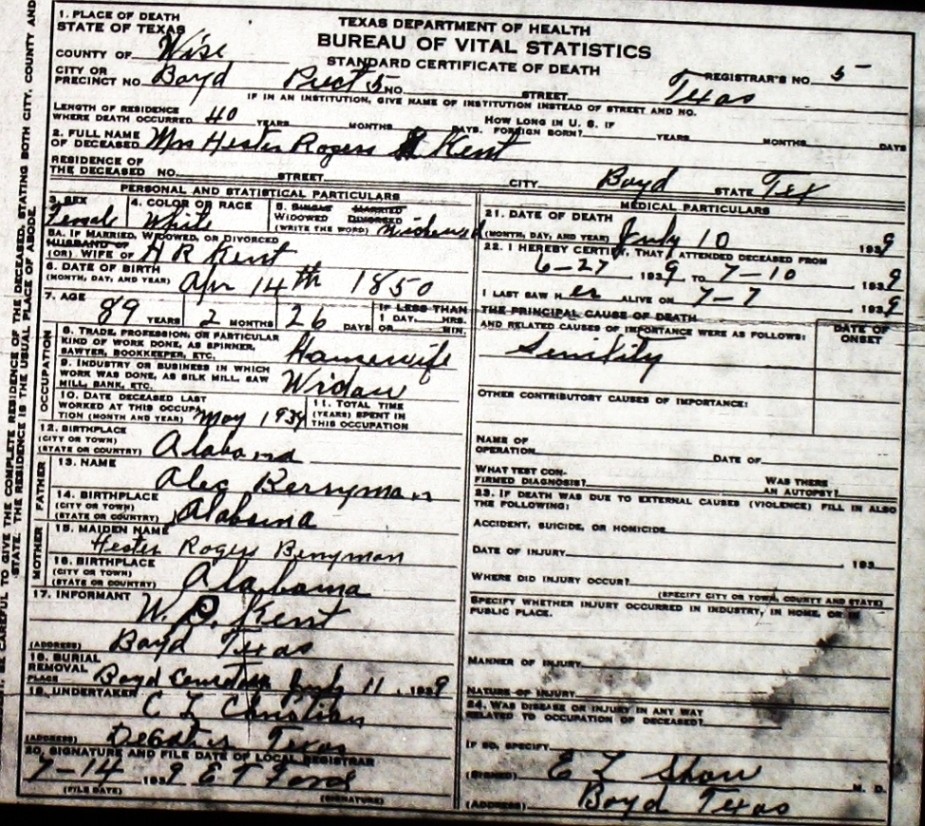 BE CAREFUL TO GIVE THE COMPLETE RESIDENCE OF THE DECEASED, STATING BOTH CITY, COUNTY AND
STATE. THE RESIDENCE IS THE USUAL PLACE OF ABODE.
TEXAS DEPARTMENT OF HEALTH
BUREAU OF VITAL STATISTICS
STANDARD CERTIFICATE OF DEATH
1. PLACE OF DEATH
STATE OF TEXAS
COUNTY OF Wise
REGISTRAR'S NO. 5
CITY OR PRECINCT NO. Boyd Prect 5 NO. STREET Texas
IF IN AN INSTITUTION, GIVE NAME OF INSTITUTION INSTEAD OF STREET AND NO.
LENGTH OF RESIDENCE WHERE DEATH OCCURRED 40 YEARS MONTHS DAYS. HOW LONG IN U. S. IF FOREIGN BORN? YEARS MONTHS DAYS
2. FULL NAME OF DECEASED Mrs Hester Rogers Kent
RESIDENCE OF THE DECEASED NO. STREET CITY Boyd STATE Tex
PERSONAL AND STATISTICAL PARTICULARS
3. SEX Female
4. COLOR OR RACE White
5. SINGLE MARRIED WIDOWED DIVORCED (WRITE THE WORD)
5A. IF MARRIED, WIDOWED, OR DIVORCED
HUSBAND OF
(OR) WIFE OF H R Kent
6. DATE OF BIRTH (MONTH, DAY, AND YEAR) Apr 14th 1850
7. AGE 89 YEARS 2 MONTHS 26 DAYS IF LESS THAN 1 DAY HRS. OR MIN.
OCCUPATION
8. TRADE, PROFESSION, OR PARTICULAR KIND OF WORK DONE, AS SPINNER, SAWYER, BOOKKEEPER, ETC. Housewife
9. INDUSTRY OR BUSINESS IN WHICH WORK WAS DONE, AS SILK MILL, SAW MILL, BANK, ETC. Widow
10. DATE DECEASED LAST WORKED AT THIS OCCUPATION (MONTH AND YEAR) May 1939
11. TOTAL TIME (YEARS) SPENT IN THIS OCCUPATION
12. BIRTHPLACE (CITY OR TOWN) (STATE OR COUNTRY) Alabama
FATHER
13. NAME Alec Berryman
14. BIRTHPLACE (CITY OR TOWN) (STATE OR COUNTRY) Alabama
MOTHER
15. MAIDEN NAME Hester Rogers Berryman
16. BIRTHPLACE (CITY OR TOWN) (STATE OR COUNTRY) Alabama
17. INFORMANT W. D. Kent
(ADDRESS) Boyd Texas
18. BURIAL REMOVAL
PLACE Boyd July 11, 1939
19. UNDERTAKER C L Christian
(ADDRESS) Texas
20. SIGNATURE AND FILE DATE OF LOCAL REGISTRAR
7-14 1939 E T Ford
(FILE DATE) (SIGNATURE)
MEDICAL PARTICULARS
21. DATE OF DEATH
(MONTH, DAY, AND YEAR) July 10 1939
22. I HEREBY CERTIFY, THAT I ATTENDED DECEASED FROM
6-27 1939 TO 7-10 1939
I LAST SAW H er ALIVE ON 7-7 1939
THE PRINCIPAL CAUSE OF DEATH
AND RELATED CAUSES OF IMPORTANCE WERE AS FOLLOWS:
DATE OF ONSET
Senility
OTHER CONTRIBUTORY CAUSES OF IMPORTANCE:
NAME OF OPERATION DATE OF
WHAT TEST CONFIRMED DIAGNOSIS? WAS THERE AN AUTOPSY?
23. IF DEATH WAS DUE TO EXTERNAL CAUSES (VIOLENCE) FILL IN ALSO THE FOLLOWING:
ACCIDENT, SUICIDE, OR HOMICIDE
DATE OF INJURY , 193
WHERE DID INJURY OCCUR?
(SPECIFY CITY OR TOWN, COUNTY AND STATE)
SPECIFY WHETHER INJURY OCCURRED IN INDUSTRY, IN HOME, OR IN
PUBLIC PLACE.
MANNER OF INJURY
NATURE OF INJURY
24. WAS DISEASE OR INJURY IN ANY WAY
RELATED TO OCCUPATION OF DECEASED?
IF SO, SPECIFY
(SIGNED) E L Shaw M. D.
(ADDRESS) Boyd Texas